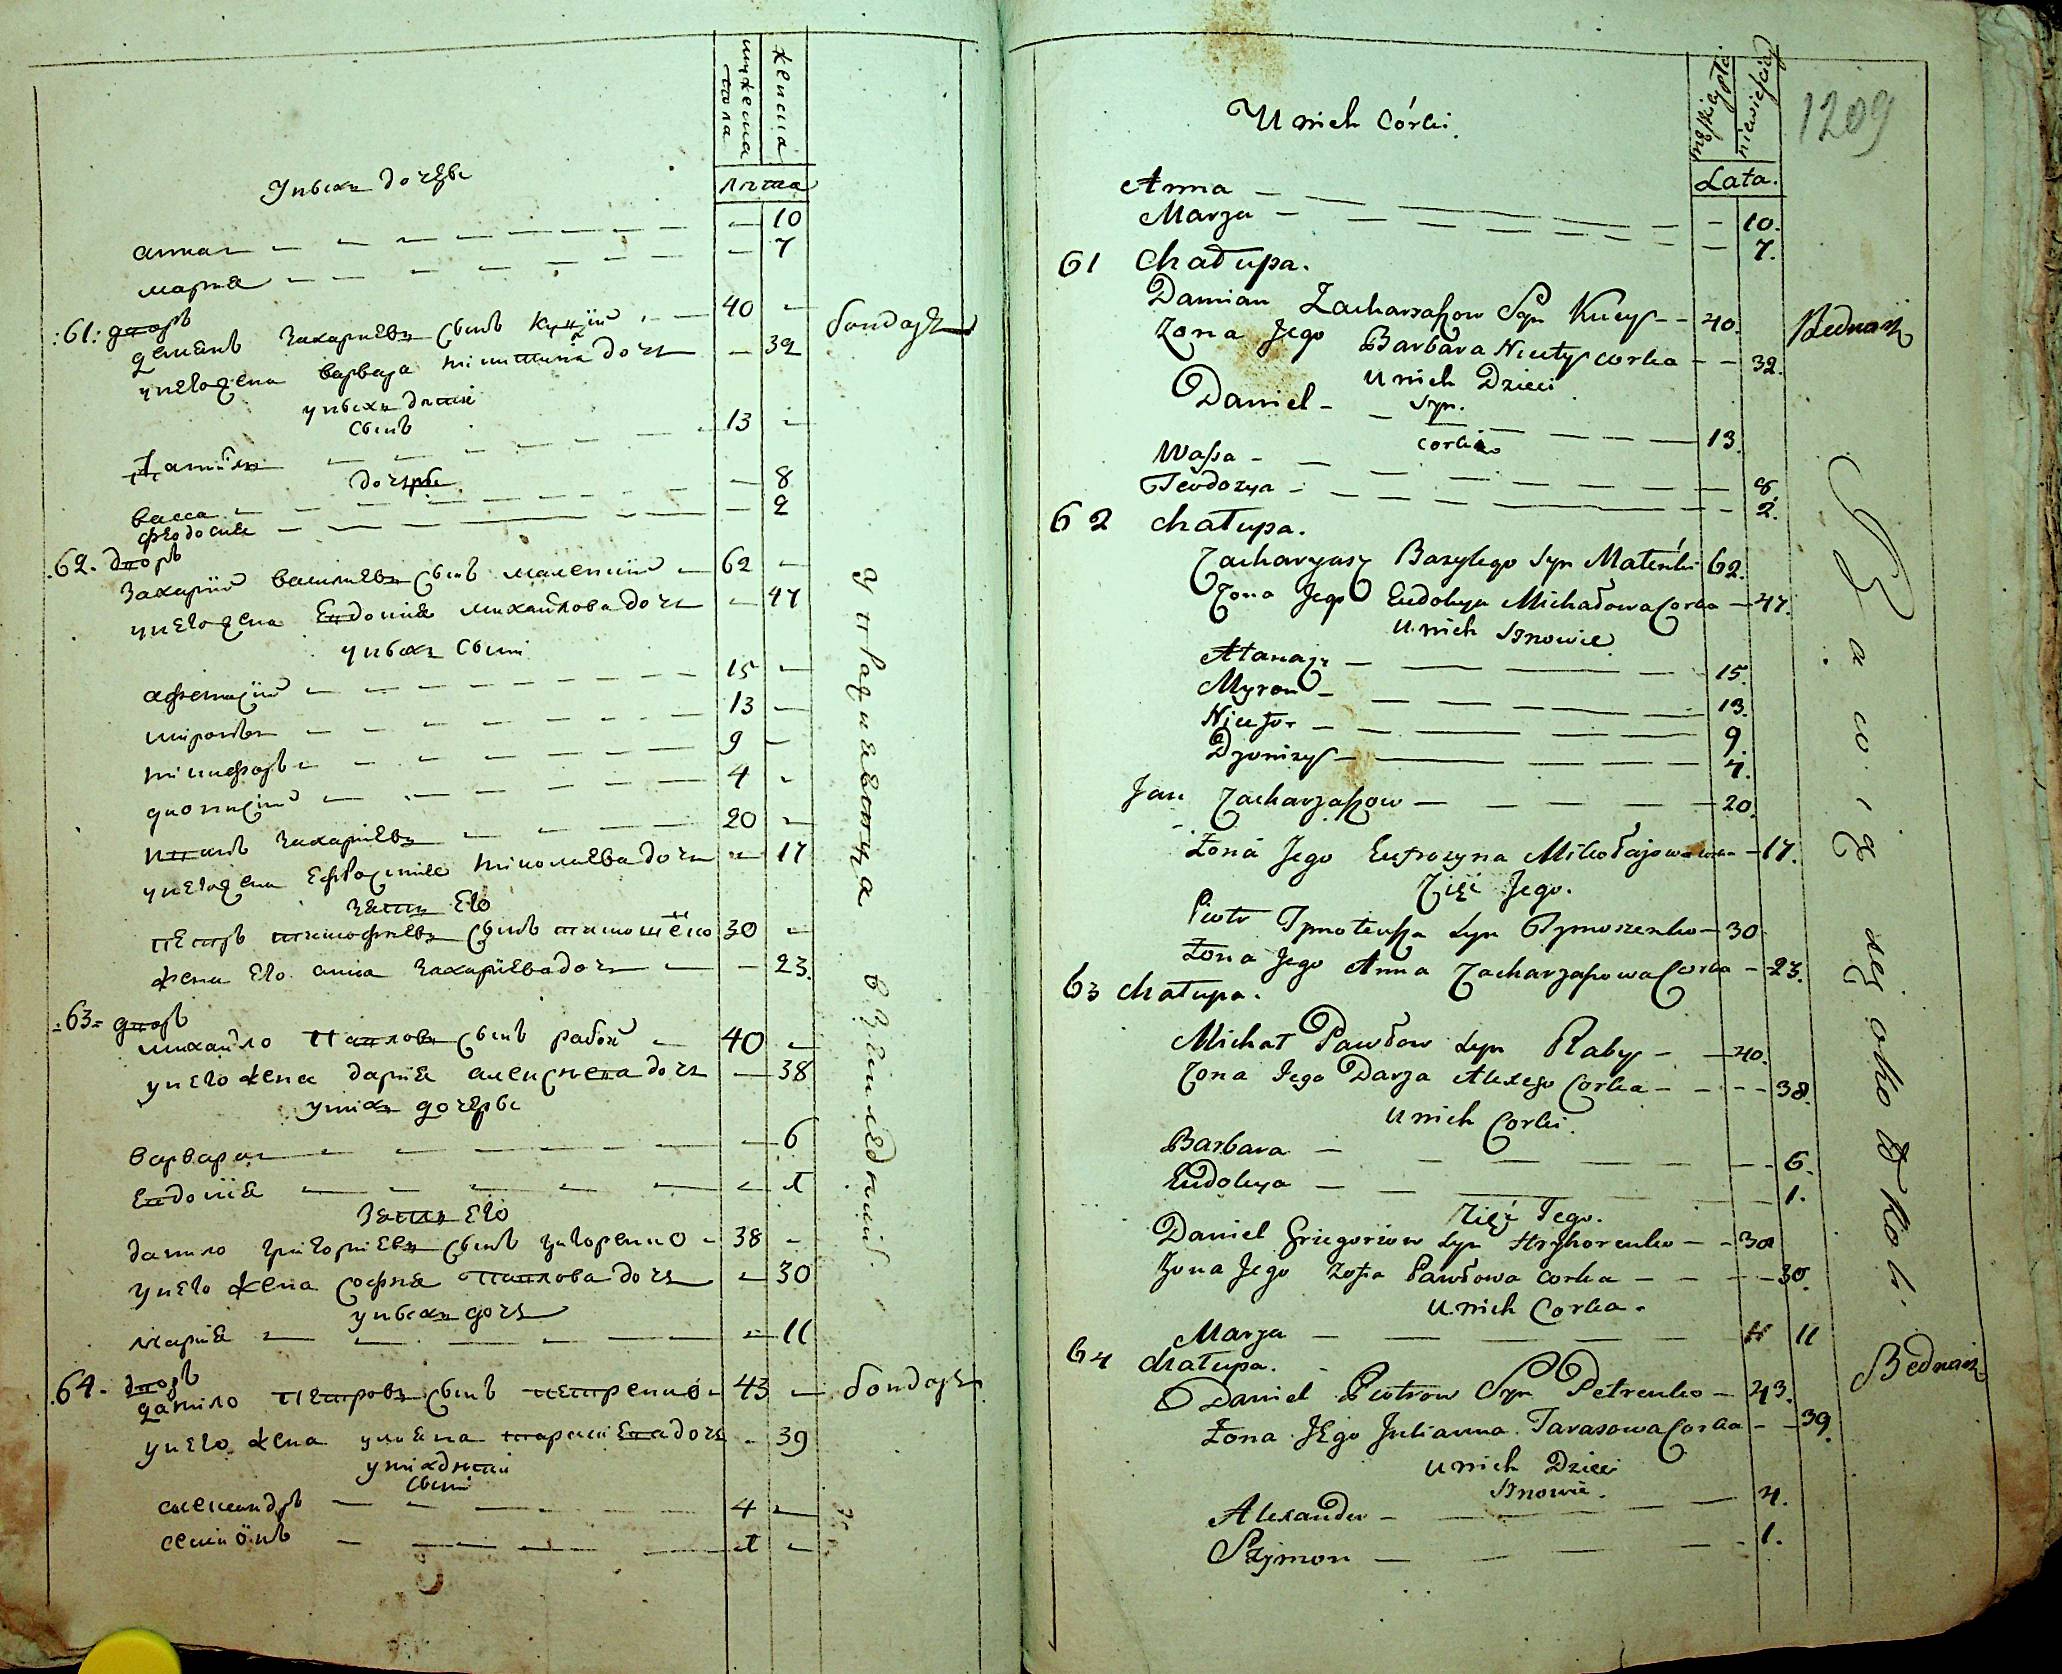 мужеска пола
женска
лѣта
У нихъ дочери
анна — — 10
марıя — — 7
:61: дворъ
демянъ Захарıевъ сынъ Куцıй — 40 —
у него жена варвара никитина дочь — 32
бондарь
у нихъ дѣти
сынъ
данıило — 13 —
дочери
васса — — 8
феодосия — — 2
.62. дворъ
Захарıй василıевъ сынъ маленкıй — 62 —
у него жена Евдокия михайлова дочь — 47
у нихъ сыни
афанасıй — 15 —
миронъ — 13 —
никифоръ — 9 —
дионисıй — 4 —
иванъ Захарıевъ — 20 —
у него жена Ефросиния николаева дочь — 17
Зять Его
петръ тимофıевъ сынъ тимошенко 30 —
жена Его анна Захарıева дочь — — 23.
:63: дворъ
михайло Павловъ сынъ рабой — 40 —
у него жена дарıя алексѣева дочь — 38
у нихъ дочери
варвара — — 6
Евдокıя — — 1
Зять Его
данило григорıевъ сынъ григоренко — 38 —
у него жена софıя павлова дочь — 30
у нихъ дочь
марıя — — 11
.64. дворъ
данило Петровъ сынъ петренко — 43 —
у него жена улияна тарасıева дочь — 39
бондарь
у нихъ дѣти
сыни
александръ — 4 —
семıонъ — 1 —
1209
męskiey płci
niewieściey
Lata.
U nich Córki.
Anna — — 10.
Marya — — 7.
61 Chałupa.
Damian Zacharyaszow Syn Kucy — 40.
Żona Jego Barbara Nikity corka — — 32.
Bednarz
U nich Dzieci
Syn.
Daniel — 13.
Corki
Wassa — — 8.
Teodozya — — 2.
62 Chałupa.
Zacharyasz Bazylego Syn Maleńki 62.
Żona Jego Eudokya Michałowa Corka — 47.
U nich Synowie.
Atanazy — 15.
Myron — 13.
Nicefor — 9.
Dyonizy — 4.
Jan Zacharyaszow — 20.
Żona Jego Eufrozyna Mikołajowa corka — 17.
Zięć Jego.
Piotr Tymoteusza Syn Tymoszenko — 30
Żona Jego Anna Zacharyaszowa Corka — 23.
63 Chałupa.
Michał Pawłow Syn Raby — 40.
Żona Jego Darya Alexego Corka — — 38.
U nich Corki.
Barbara — — 6.
Eudokya — — 1.
Zięć Jego.
Daniel Griegoriow Syn Hryhorenko — 38
Żona Jego Zofia Pawłowa corka — — 30.
U nich Corka.
Marya — 11
64 Chałupa.
Daniel Piotrow Syn Petrenko — 43.
Żona Jego Julianna Tarasowa Corka — — 39.
Bednarz
U nich Dzieci
Synowie.
Alexander — 4.
Szymon — 1.